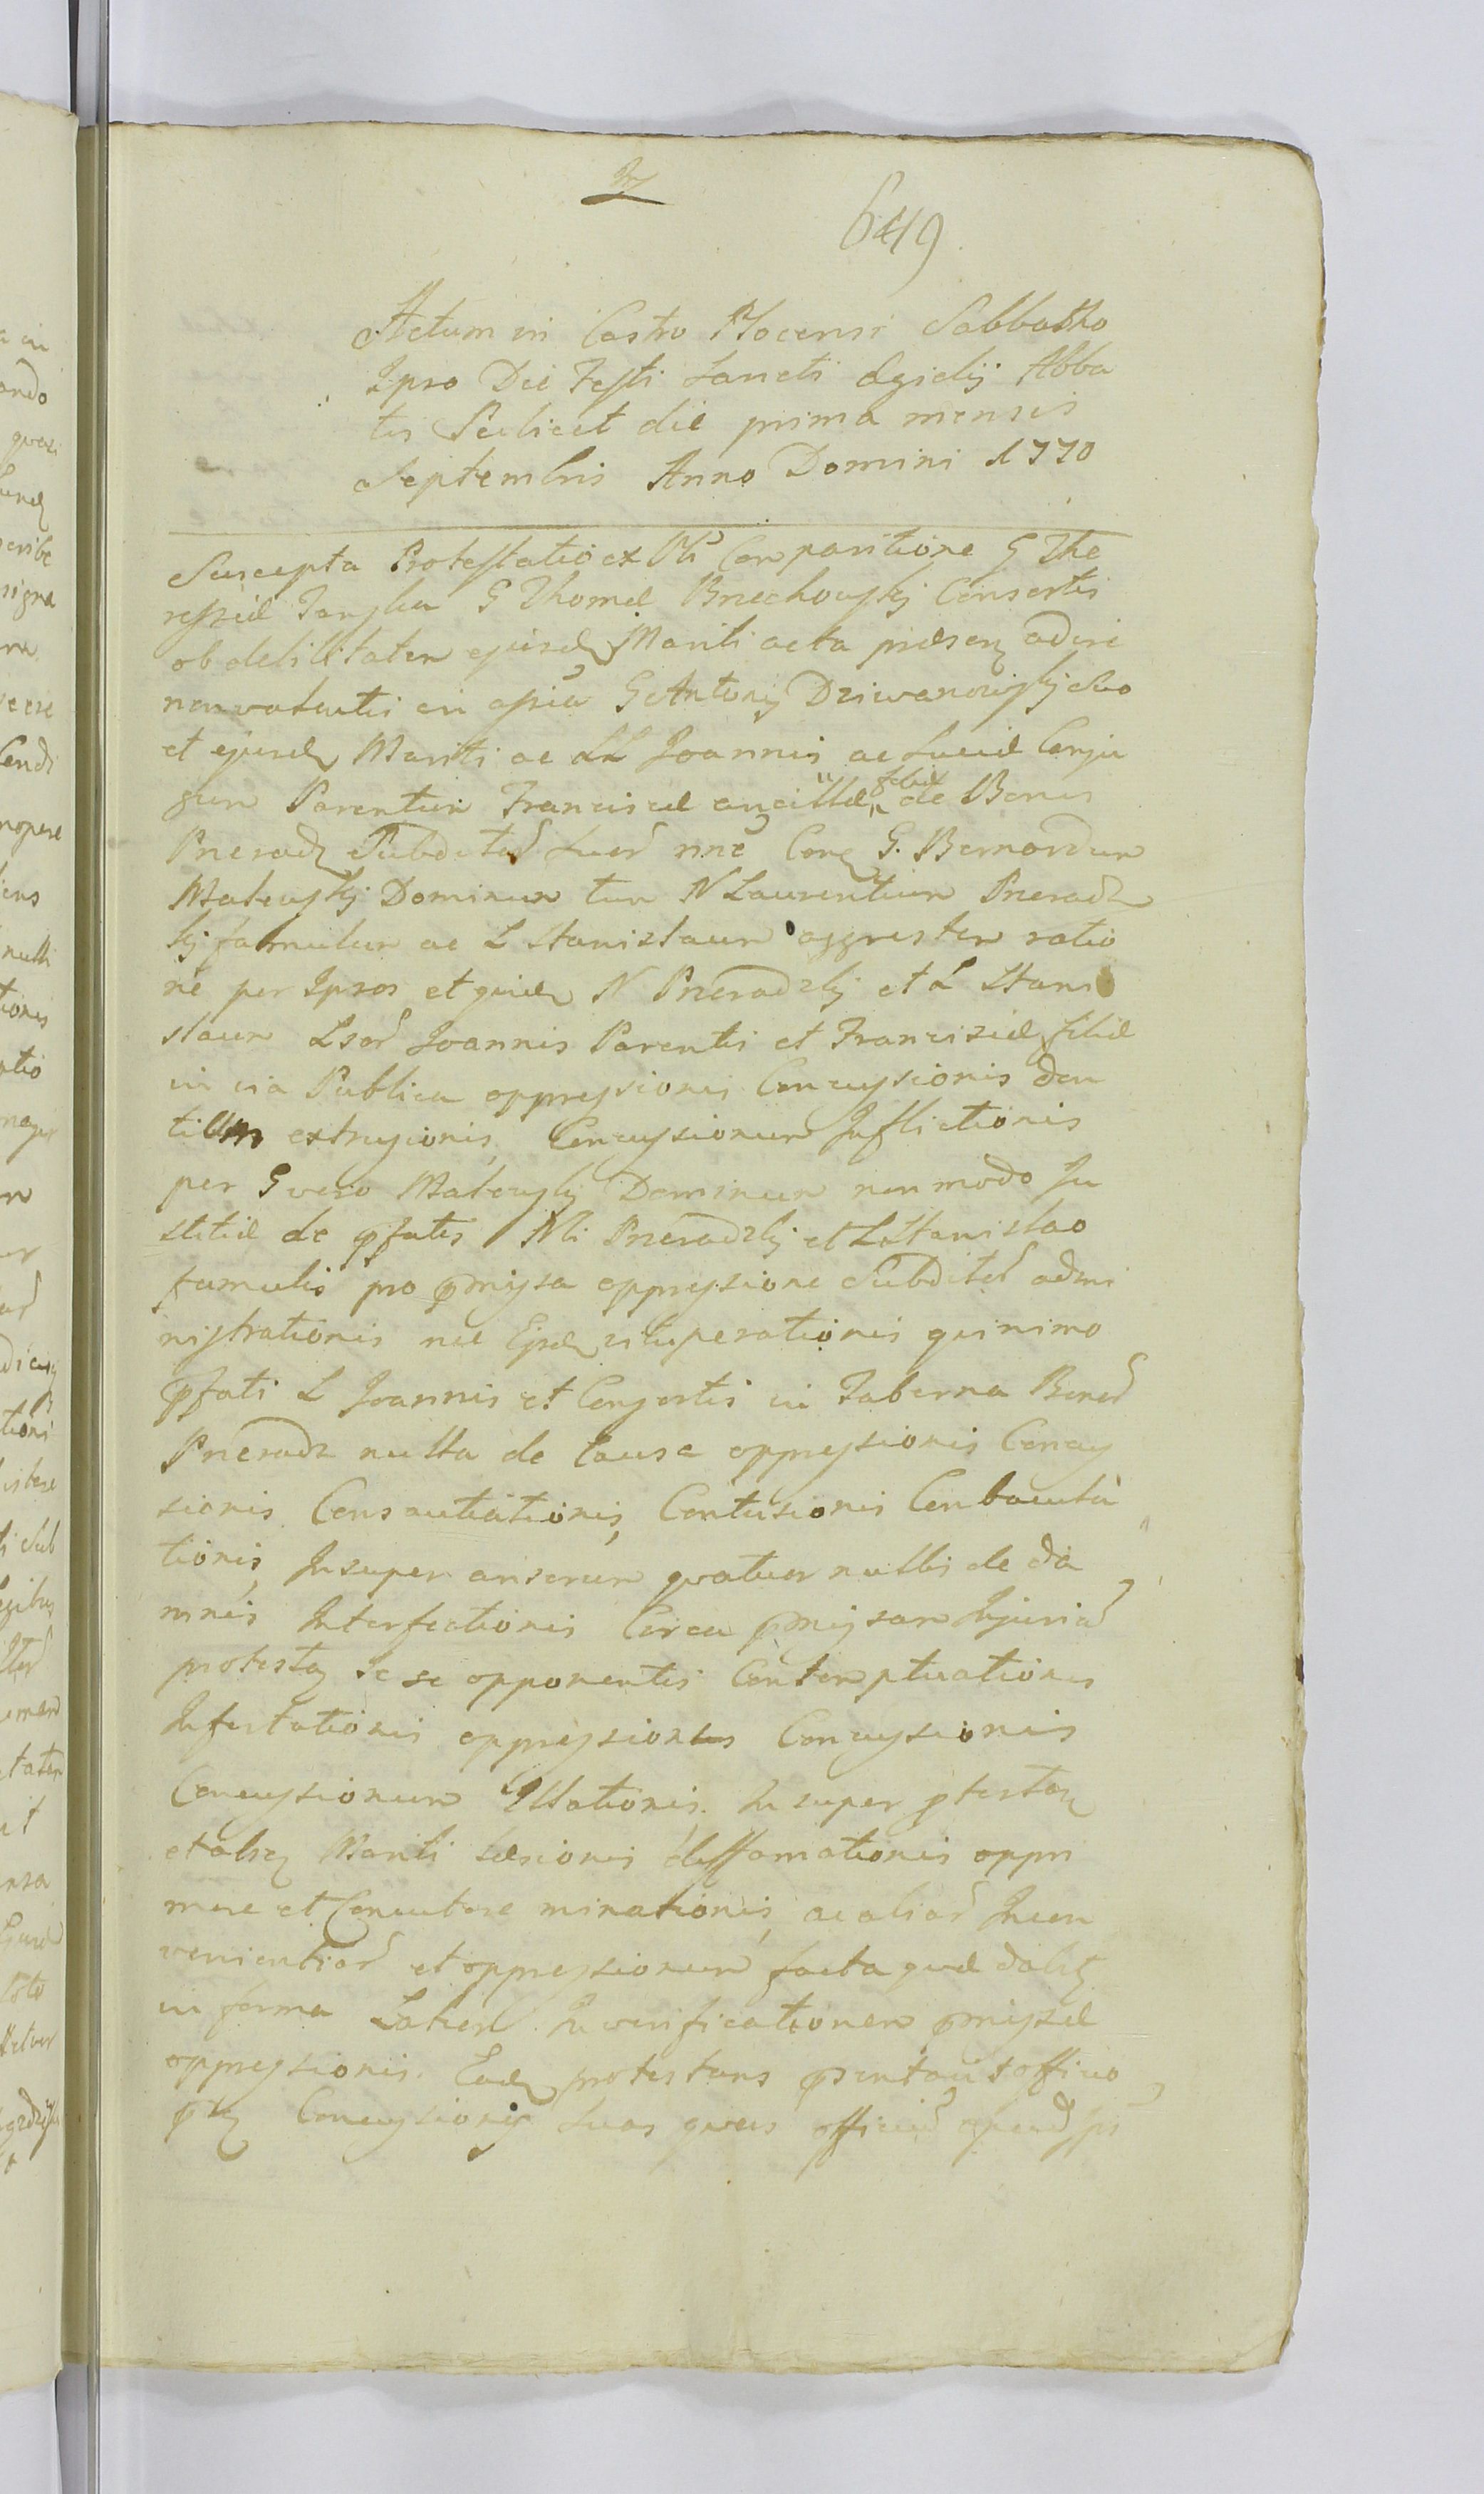 649
Actum in Castro Plocensi Sabbatho
Ipso Die Festi Sancti Egidij Abba
tis Scilicet die prima mensis
Septembris Anno Domini 1770
Suscepta Protestatio ex Comparitione G The
ressiæ G Thomæ Consortis
ob debilitatem ejusd Mariti acta adire
non valentis in G Antonij Dziwanowskj suo
et ejusd Mariti ac LL Joannis ac Luciæ Conju
gum Parentum Franciscæ ancillæ filiæ de Bonis
Pneradz Subditor suor nnē Cong G. Bernardum
Makowskj Dominum tum N Laurentium Pneradz
kj famulum ac L Stanislaum aggrestem ratio
ne per Ipsos et quid N Pneradzkj et L Stani
slaum Lsor Joannis Parentis et Franciscæ filiæ
in via Publica oppressionis Concussionis den
tium extrusionis, Concussionum Inflictionis
per G vero Makowskj Dominum non modo Ju
stitiæ de pfatis Nli Pneradzkj et L Stanislao
famulis pro pmissa oppressione Subditor admi
nistrationis nec Eosd vituperationis quinimo
pfati L Joannis et Consortis in Taberna Bonor
Pneradz nulla de Causa oppressionis Concus
sionis Consautiationis, Contusionis Conbacula
tionis, Insuper anserum quatuor nullis de da
mnis Interfectionis Circa pmissam Injuriam
protestan se se opponentis Contemptuationis
Infestationis oppressionis Concussionis
Concussionum Illationis. Insuper ptestan
et absen Mariti læsionis deffamationis oppri
mere et Concutere minationis, ac alior Incon
venientior et oppressionum facta quæ dabit
in forma Latiori. In verificationem pmissæ
oppressionis. Ead protestans psentavit officio
pnti Concussiones suas quas officium